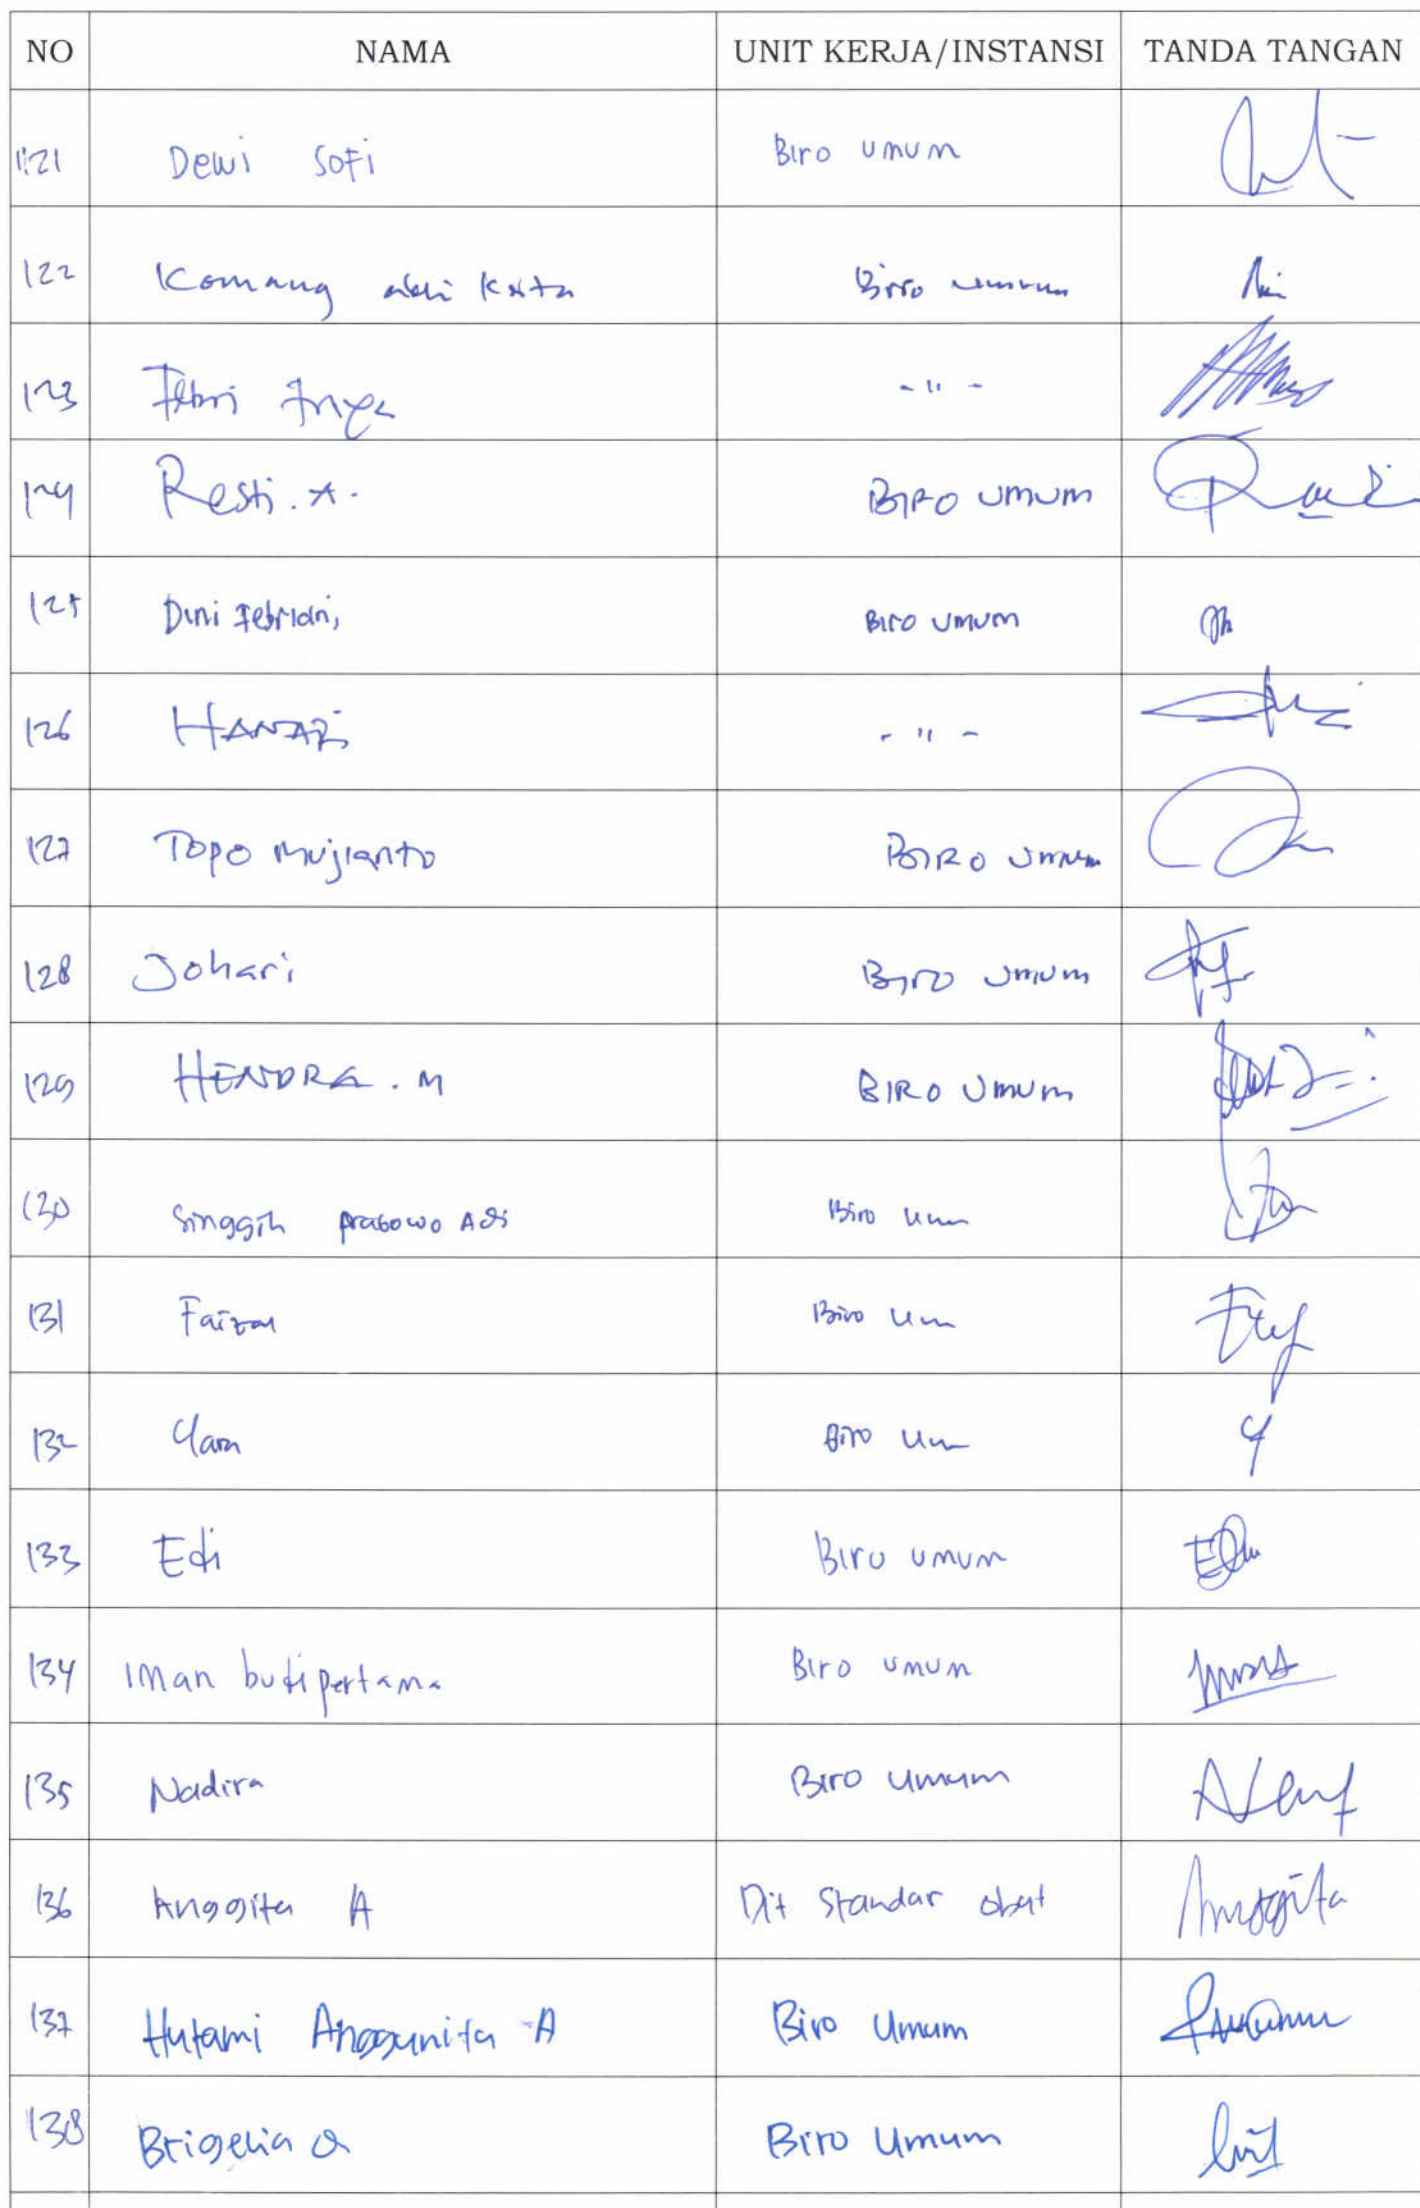 NO NAMA UNIT KERJA/INSTANSI TANDA TANGAN
121 Dewi Sofi Biro Umum
122 Komang Biro umum
123 Febri - " -
124 Resti. A. BIRO UMUM
125 Dini Febriani, Biro Umum
126 - " -
127 Topo Mujianto BIRO Umum
128 Johari Biro Umum
129 HENDRA. M BIRO Umum
130 Singgih prabowo Adi Biro Um
131 Faizal Biro Um
132 Biro Um
133 Edi Biro Umum
134 Iman budi pertama Biro Umum
135 Nadira Biro Umum
136 Anggita A Dit Standar obat Anggita
137 Hutami Anggunita A Biro Umum
138 Brigelia Biro Umum